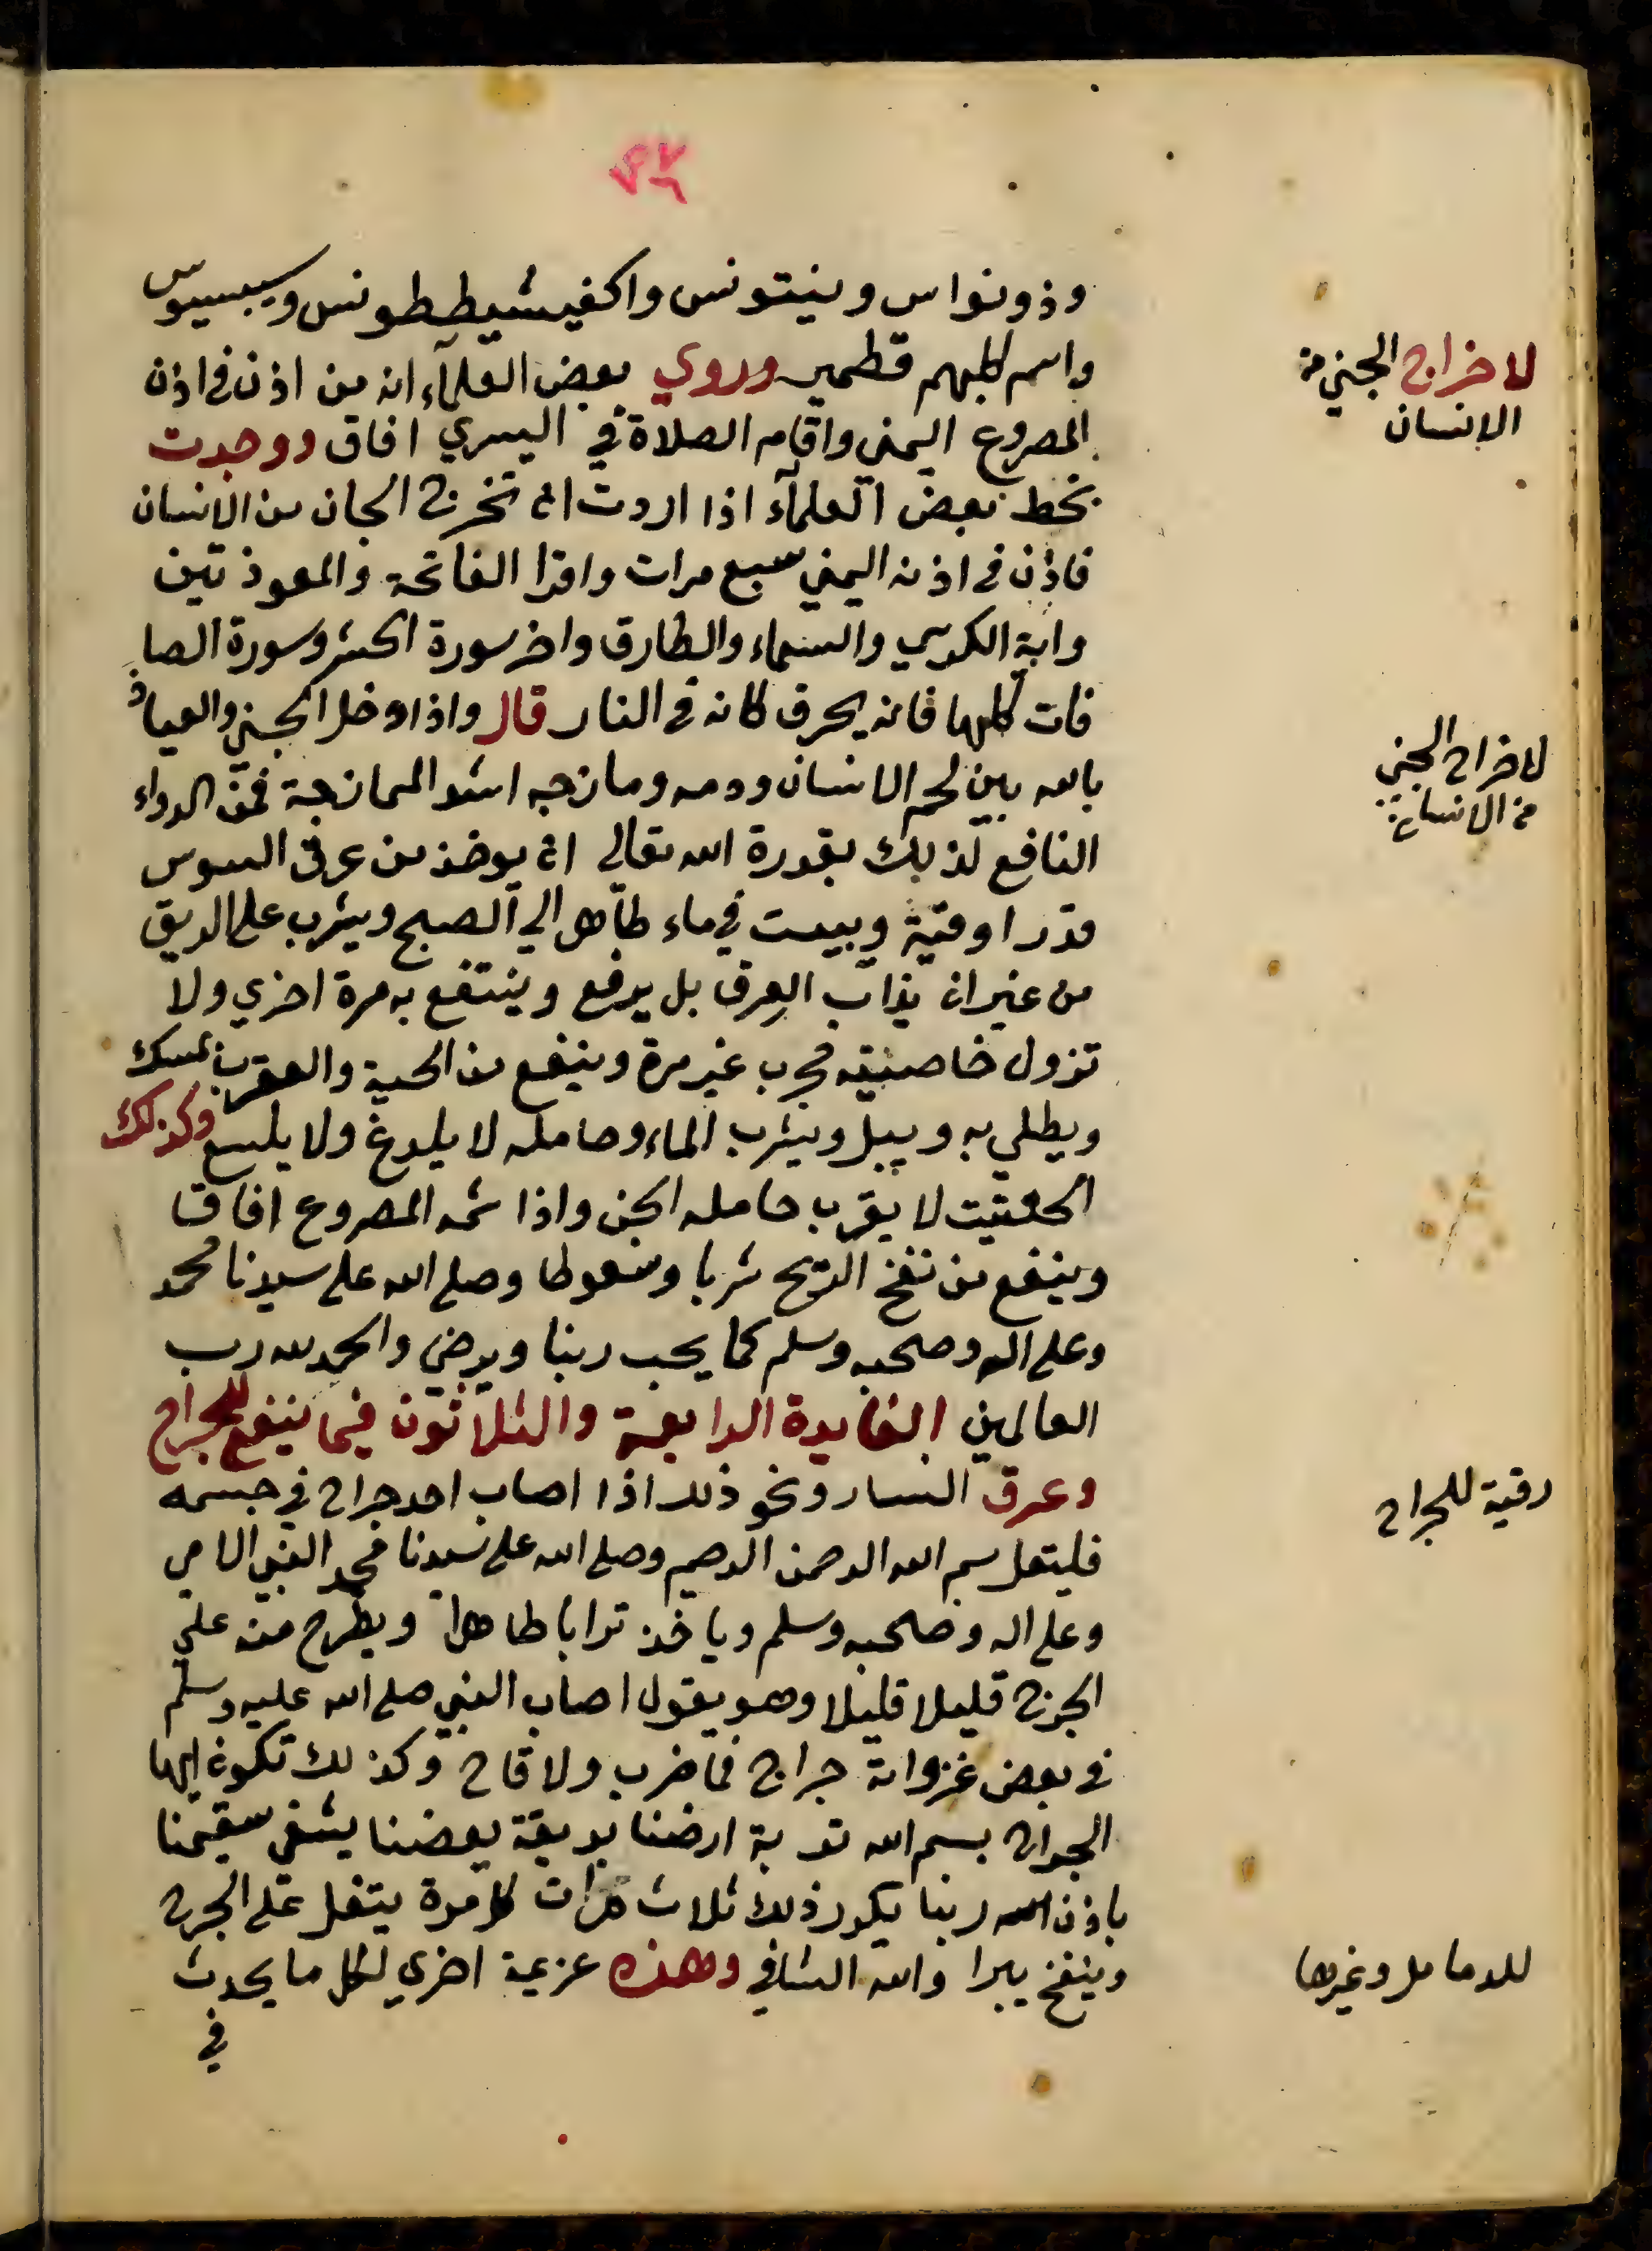 وذونواس وينتونس واكفيشيططونس وسيسيوس
واسم كلبهم قطمير وروي بعض العلماء انه من اذن في اذن
المصروع اليمني واقام الصلاة في اليسري افاق ووجدت
بخط بعض العلماء اذا اردت ان تخرج الجان من الانسان
فاذن في اذنه اليمني سبع مرات واقرا الفاتحة والمعوذتين
واية الكرسي والسماء والطارق واخر سورة الحشر وسورة الصا
فات كلها فانه يحرق كانه في النار قال واذا دخل الجني والعياذ
بالله بين لحم الانسان ودمه ومازجه اشد الممازجة فمن الدواء
النافع لذلك بقدرة الله تعالي ان يوخذ من عرق السوس
قدر اوقية ويبيت في ماء طاهر الي الصبح ويشرب علي الريق
من غير ان يذاب العرق بل يرفع وينتفع به مرة اخري ولا
تزول خاصيته مجرب غير مرة وينفع من الحية والعقرب يمسك
ويطلي به ويبل ويشرب الماء وحامله لا يلدغ ولا يلسع وكذلك
الحلتيت لا يقرب حامله الجن واذا شمه المصروع افاق
وينفع من نفخ الريح شربا وسعوطا وصلي الله علي سيدنا محمد
وعلي اله وصحبه وسلم كما يحب ربنا ويرضي والحمد لله رب
العالمين الفايدة الرابعة والثلاثون فيما ينفع للجراح
وعرق النسا ونحو ذلك اذا اصاب احد جراح في جسمه
فليقل بسم الله الرحمن الرحيم وصلي الله علي سيدنا محمد النبي الامي
وعلي اله وصحبه وسلم وياخذ ترابا طاهرا ويطرح منه علي
الجرح قليلا قليلا وهو يقول اصاب النبي صلي الله عليه وسلم
في بعض غزواته جراح فما ضرب ولا قاح وكذلك تكون ايها
الجراح بسم الله تربة ارضنا بريقة بعضنا يشفي سقيمنا
باذن الله ربنا يكرر ذلك ثلاث مرات كل مرة يتفل علي الجرح
وينفخ يبرا والله الشافي وهذه عزيمة اخري لكل ما يحدث
في
لاخراج الجني من
الانسان
لاخراج الجني
من الانسان
رقية للجراح
للدمامل وغيرها